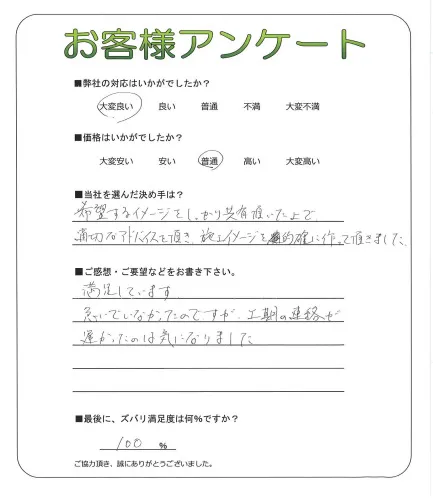 お客様アンケート
■弊社の対応はいかがでしたか?
大変良い 良い 普通 不満 大変不満
■価格はいかがでしたか?
大変安い 安い 普通 高い 大変高い
■当社を選んだ決め手は?
希望するイメージをしっかり共有頂いた上で
適切なアドバイスを頂き、施工イメージを的確に作って頂きました。
■ご感想・ご要望などをお書き下さい。
満足しています
急いでいなかったのですが、工期の連絡が
遅かったのは気になりました
■最後に、ズバリ満足度は何%ですか?
100 %
ご協力頂き、誠にありがとうございました。